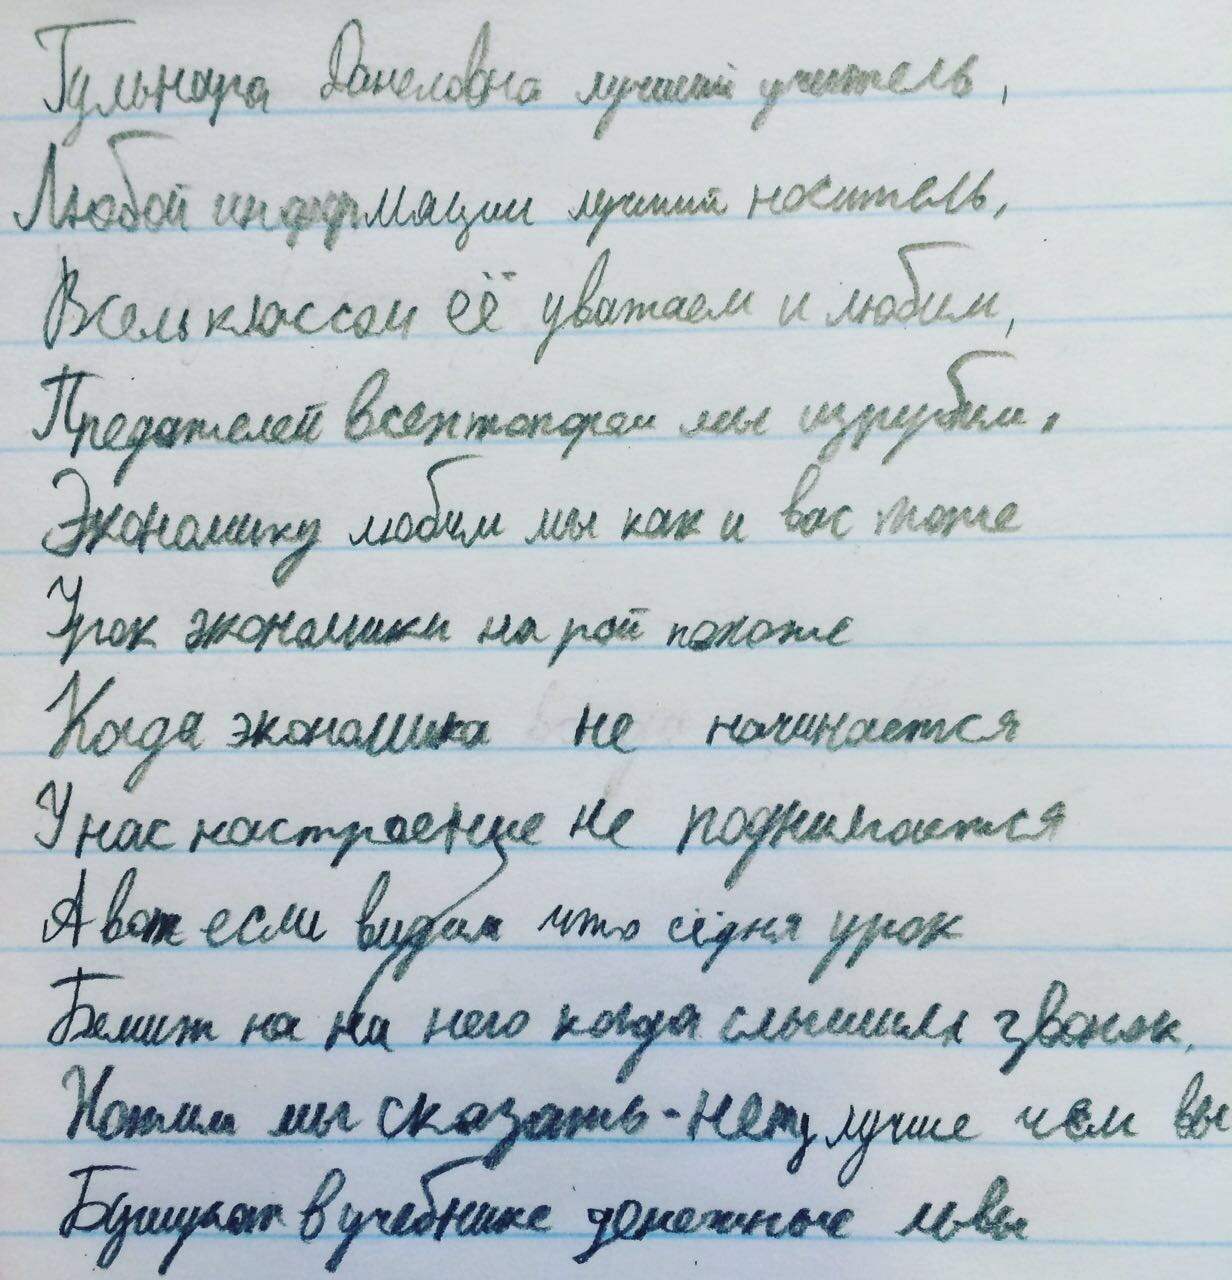 Гульнара Данеловна лучший учитель,
Любой информации лучший носитель,
Всем классом её уважаем и любим,
Предателей всех топором мы изрубим.
Экономику любим мы как и вас тоже
Урок экономики на рай похоже
Когда экономика не начинается
У нас настроение не поднимается
А вот если видим что седня урок
Бежит на на него когда слышим звонок,
Хотим мы сказать - нету лучше чем вы
в учебнике денежные львы